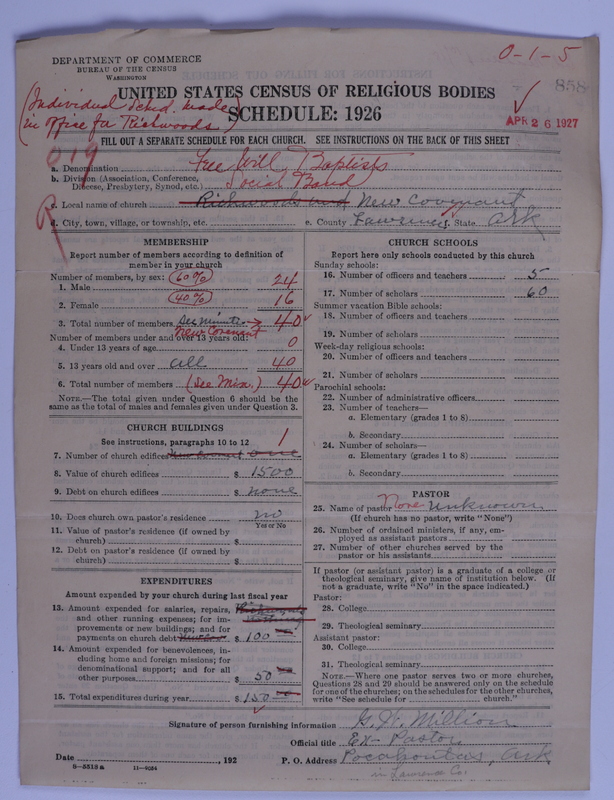 DEPARTMENT OF COMMERCE
BUREAU OF THE CENSUS
WASHINGTON
0-1-5
858
(Individual Sched. made
in office for Richwoods)
UNITED STATES CENSUS OF RELIGIOUS BODIES
SCHEDULE: 1926
APR 26 1927
FILL OUT A SEPARATE SCHEDULE FOR EACH CHURCH. SEE INSTRUCTIONS ON THE BACK OF THIS SHEET
019
a. Denomination Free Will Baptists
b. Division (Association, Conference,
Diocese, Presbytery, Synod, etc.) Social Band
c. Local name of church Richwoods and New Covenant
d. City, town, village, or township, etc. e. County Lawrence, State Ark
R
MEMBERSHIP
Report number of members according to definition of
member in your church
Number of members, by sex: (60%)
1. Male 24
(40%)
2. Female 16
3. Total number of members See minutes → 40
New Covenant
Number of members under and over 13 years old:
4. Under 13 years of age 0
5. 13 years old and over all 40
6. Total number of members (See Min.) 40
NOTE.—The total given under Question 6 should be the
same as the total of males and females given under Question 3.
CHURCH BUILDINGS
See instructions, paragraphs 10 to 12
1
7. Number of church edifices New Covenant one
8. Value of church edifices $ 1500
9. Debt on church edifices $ none
10. Does church own pastor's residence no
Yes or No
11. Value of pastor's residence (if owned by
church) $
12. Debt on pastor's residence (if owned by
church) $
EXPENDITURES
Amount expended by your church during last fiscal year
13. Amount expended for salaries, repairs, Richwoods
and other running expenses; for im- nothing
provements or new buildings; and for
payments on church debt $ 100
14. Amount expended for benevolences, in-
cluding home and foreign missions; for
denominational support; and for all
other purposes $ 50
15. Total expenditures during year $ 150
CHURCH SCHOOLS
Report here only schools conducted by this church
Sunday schools:
16. Number of officers and teachers 5
17. Number of scholars 60
Summer vacation Bible schools:
18. Number of officers and teachers
19. Number of scholars
Week-day religious schools:
20. Number of officers and teachers
21. Number of scholars
Parochial schools:
22. Number of administrative officers
23. Number of teachers—
a. Elementary (grades 1 to 8)
b. Secondary
24. Number of scholars—
a. Elementary (grades 1 to 8)
b. Secondary
PASTOR
25. Name of pastor None Unknown
(If church has no pastor, write "None")
26. Number of ordained ministers, if any, em-
ployed as assistant pastors
27. Number of other churches served by the
pastor or his assistants
If pastor (or assistant pastor) is a graduate of a college or
theological seminary, give name of institution below. (If
not a graduate, write "No" in the space indicated.)
Pastor:
28. College
29. Theological seminary
Assistant pastor:
30. College
31. Theological seminary
NOTE.—Where one pastor serves two or more churches,
Questions 28 and 29 should be answered only on the schedule
for one of the churches; on the schedules for the other churches,
write "See schedule for church."
Signature of person furnishing information G. W. Million
Official title Ex-Pastor
Date , 192 P. O. Address Pocahontas, Ark
8—5313a 11—4034
in Lawrence Co.